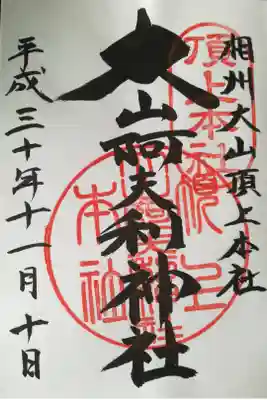 相州大山頂上本社
大山阿夫利神社
平成三十年十一月十日
頂上本社
本社